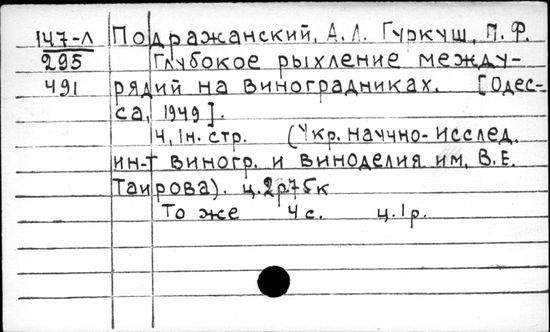 147-Л Подражанский, А.Л. Гуркуш, П.Ф.
295 Глубокое рыхление между-
491 рядий на виноградниках. [Одес-
са, 1949].
4, 1н. стр. (Укр. научно-исслед.
ин-т виногр. и виноделия им. В.Е.
Таирова). ц. 2р75к
То же 4с. ц. 1р.